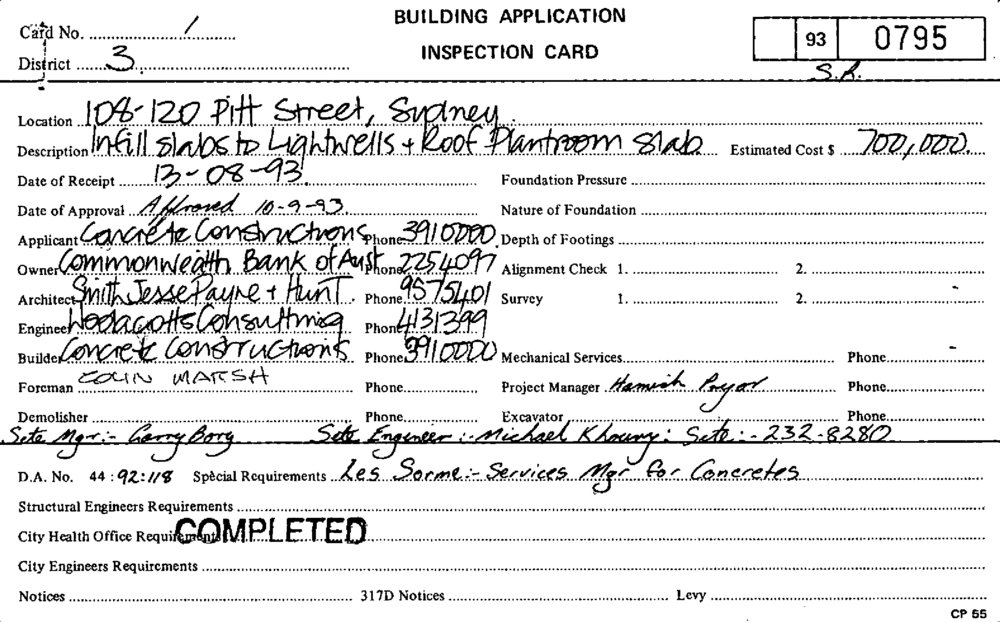 BUILDING APPLICATION
Card No. 1
93 0795
INSPECTION CARD
District 3
S.R.
Location 108-120 Pitt Street, Sydney
Description Infill slabs to Lightwells + Roof Plantroom Slab Estimated Cost $ 700,000.
Date of Receipt 13-08-93 Foundation Pressure
Date of Approval Approved 10-9-93. Nature of Foundation
Applicant Concrete Constructions Phone 3910000 Depth of Footings
Owner Commonwealth Bank of Aust Phone 2254097 Alignment Check 1. 2.
Architect Smith Jesse Payne + Hunt. Phone 9575401 Survey 1. 2.
Engineer Consulting Phone 4131399
Builder Concrete Constructions Phone 3910000 Mechanical Services Phone
Foreman COLIN MARSH Phone Project Manager Hamish Pryor Phone
Demolisher Phone Excavator Phone
Site Mgr:- Garry Borg Site Engineer:- Michael Khoury: Site:- 232-8280
D.A. No. 44:92:118 Spècial Requirements Les Sorme:- Services Mgr for Concretes
Structural Engineers Requirements
City Health Office Requirements COMPLETED
City Engineers Requirements
Notices 317D Notices Levy
CP 55